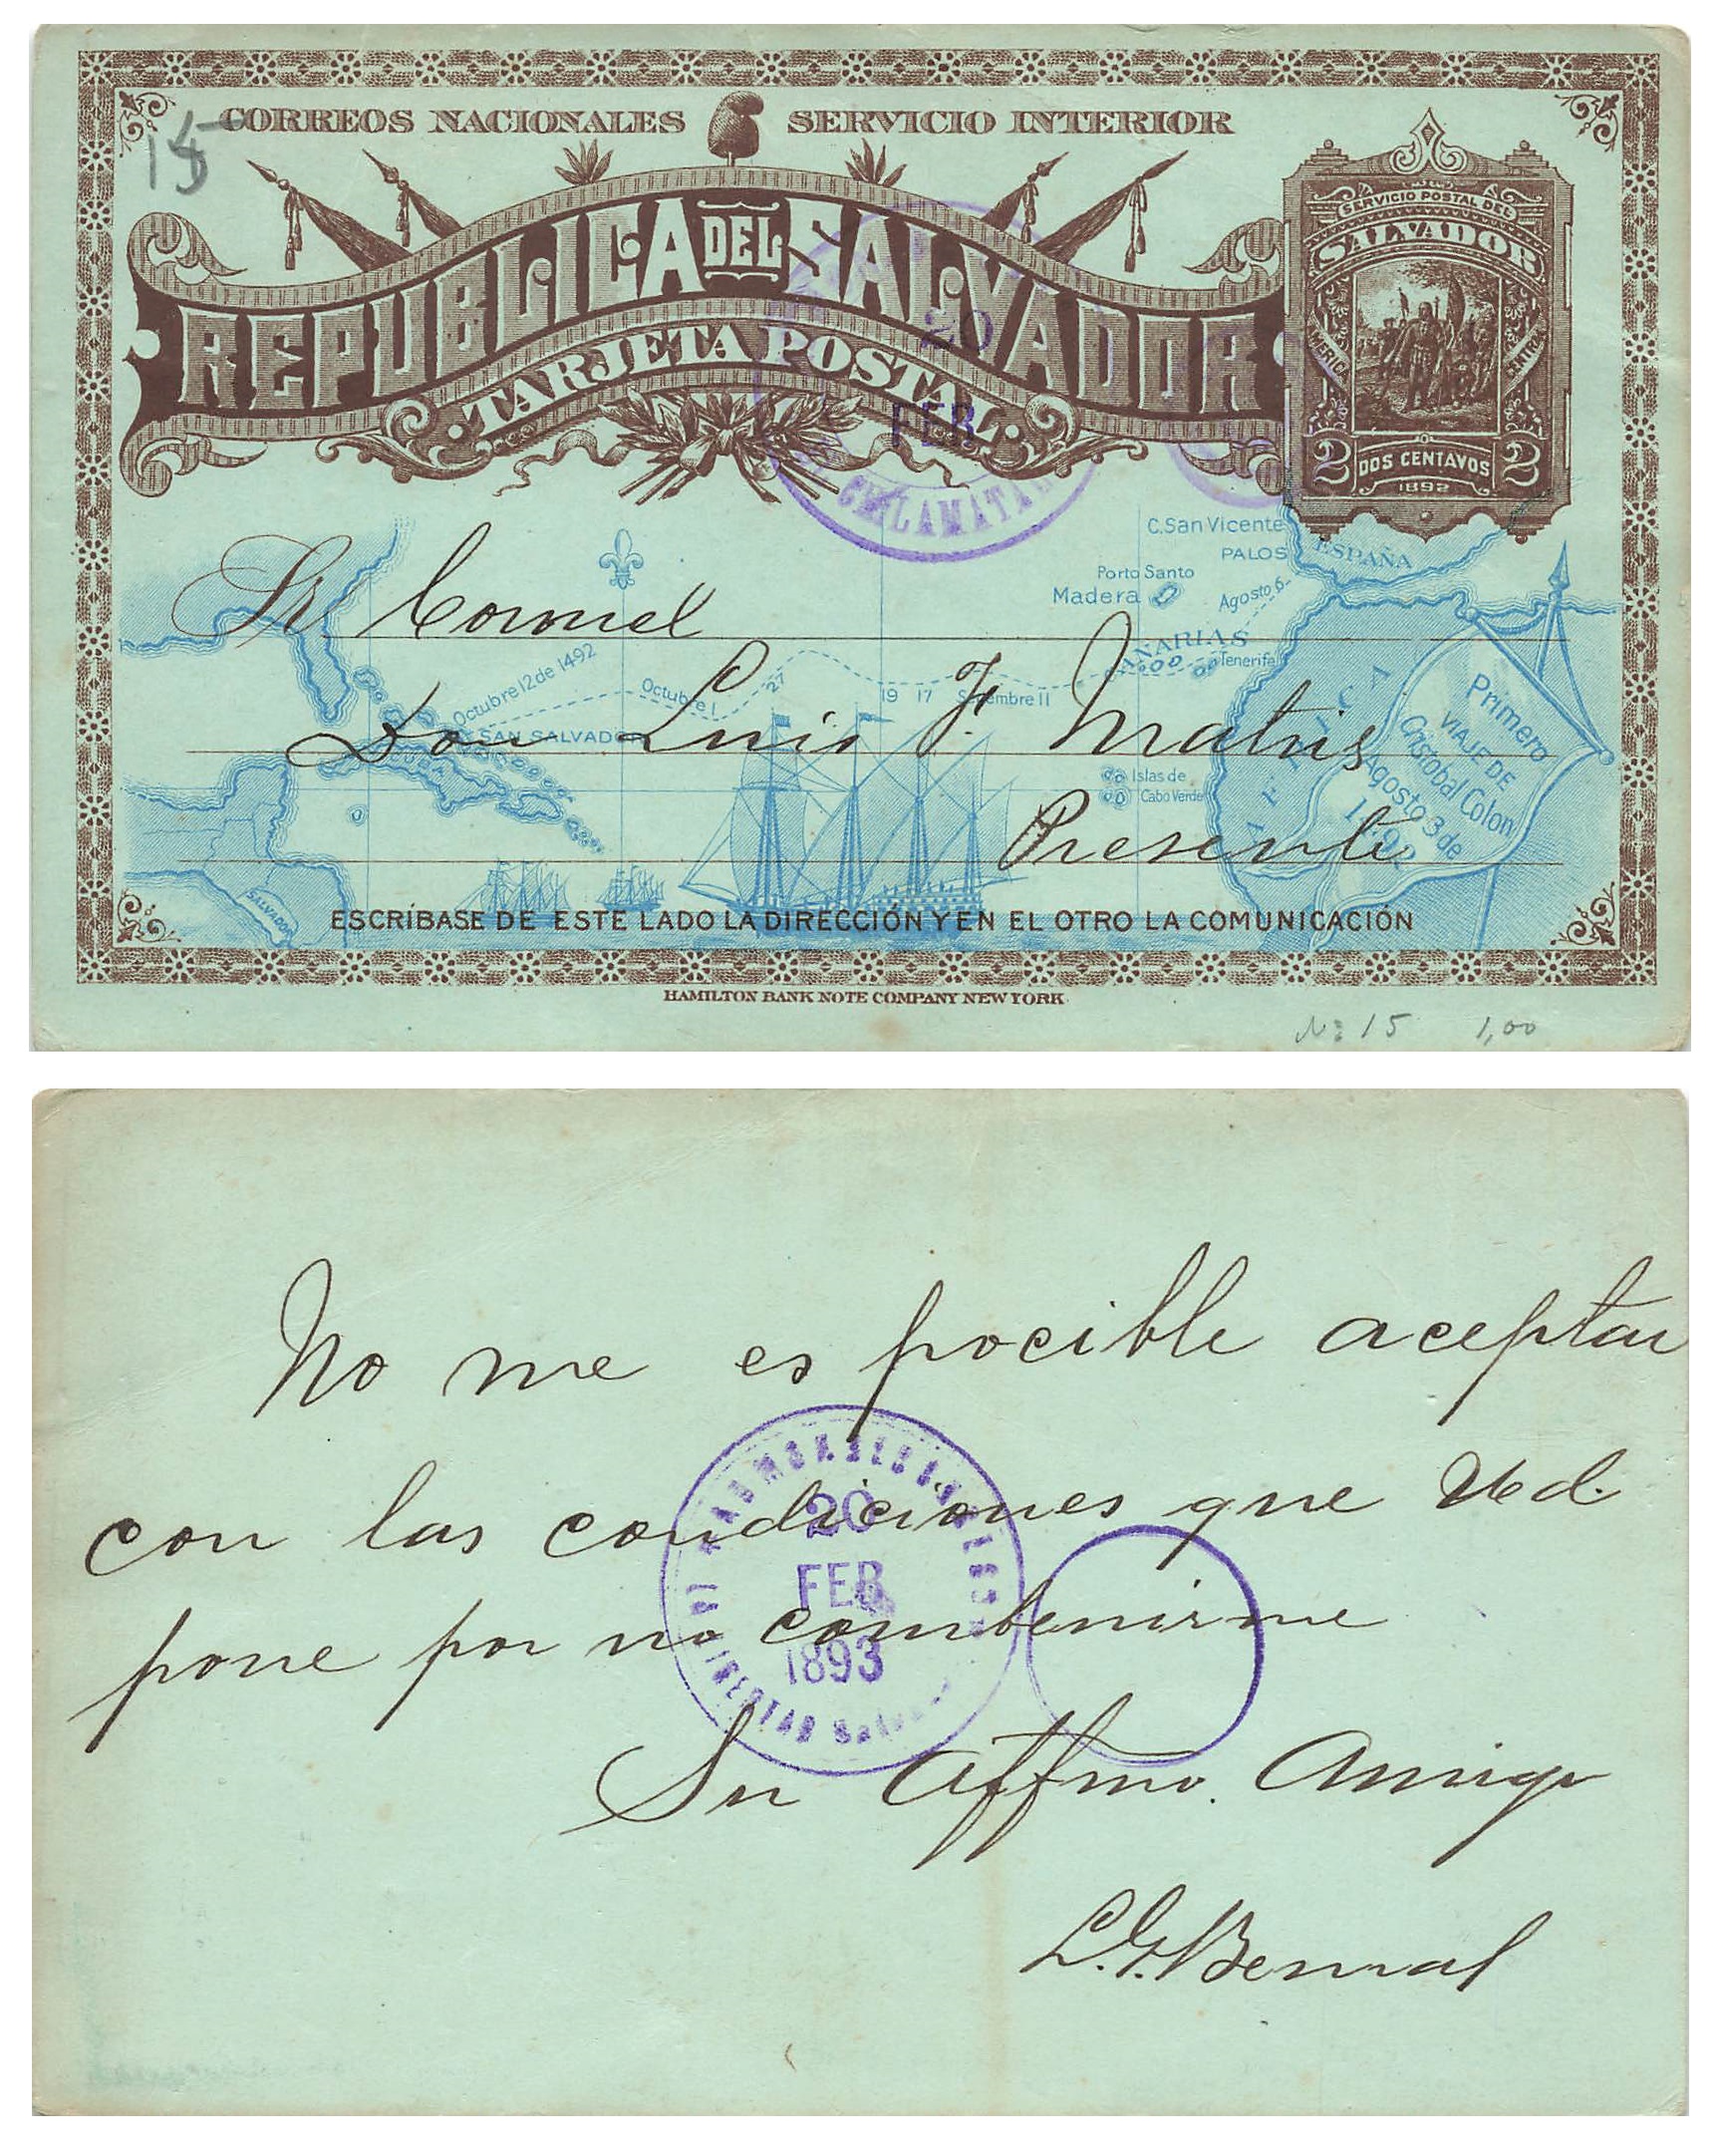 15
CORREOS NACIONALES SERVICIO INTERIOR
REPUBLICA DEL SALVADOR
TARJETA POSTAL
SERVICIO POSTAL DEL
SALVADOR
AMERICA CENTRAL
2 DOS CENTAVOS 2
1892
20
FEB
C. San Vicente
PALOS
ESPAÑA
Porto Santo
Madera
Agosto 6
CANARIAS
Tenerife
Octubre 12 de 1492
Octubre 1
27
19 17 Setiembre 11
SAN SALVADOR
CUBA
Islas de
Cabo Verde
AFRICA
SALVADOR
Primero
VIAJE DE
Cristobal Colon
Agosto 3 de
1492
Sr. Coronel
Don Luis F. Matus
Presente
ESCRÍBASE DE ESTE LADO LA DIRECCIÓN Y EN EL OTRO LA COMUNICACIÓN
HAMILTON BANK NOTE COMPANY NEW YORK
No 15 1,00
No me es pocible aceptar
con las condiciones que Ud.
pone por no combenirme
Su Affmo. Amigo
L. G. Bernal
20
FEB
1893
LIBERTAD